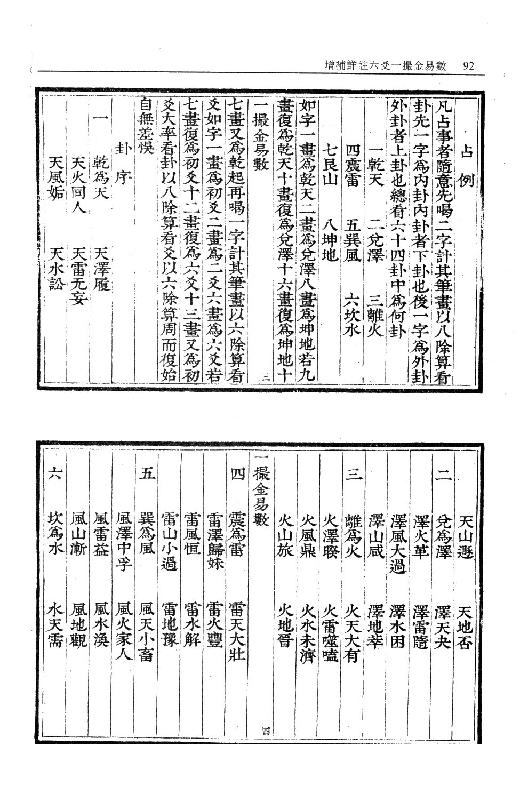 增補詳註六爻一撮金易數 92
占例
凡占事者隨意先喝二字計其筆畫以八除算看
卦先一字為內卦內卦者下卦也後一字為外卦
外卦者上卦也總看六十四卦中為何卦
一乾天 二兌澤 三離火
四震雷 五巽風 六坎水
七艮山 八坤地
如字一畫為乾天二畫為兌澤八畫為坤地若九
畫復為乾天十畫復為兌澤十六畫復為坤地十
一撮金易數 三
七畫又為乾起再喝一字計其筆畫以六除算看
爻如字一畫為初爻二畫為二爻六畫為六爻若
七畫復為初爻十二畫復為六爻十三畫又為初
爻大率看卦以八除算看爻以六除算周而復始
自無差悞
卦序
一 乾為天 天澤履
天火同人 天雷无妄
天風姤 天水訟
天山遯 天地否
二 兌為澤 澤天夬
澤火革 澤雷隨
澤風大過 澤水困
澤山咸 澤地萃
三 離為火 火天大有
火澤睽 火雷噬嗑
火風鼎 火水未濟
火山旅 火地晉
一撮金易數 四
四 震為雷 雷天大壯
雷澤歸妹 雷火豐
雷風恒 雷水解
雷山小過 雷地豫
五 巽為風 風天小畜
風澤中孚 風火家人
風雷益 風水渙
風山漸 風地觀
六 坎為水 水天需